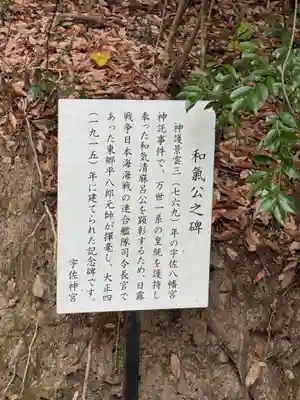 和氣公之碑
神護景雲三(七六九)年の宇佐八幡宮
神託事件で、万世一系の皇統を護持し
奉った和気清麻呂公を顕彰するため、日露
戦争日本海海戦の連合艦隊司令長官で
あった東郷平八郎元帥が揮毫し、大正四
(一九一五)年に建てられた記念碑です。
宇佐神宮